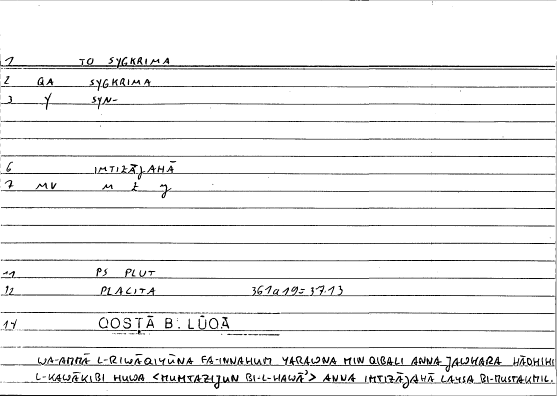 1 TO SYGKRIMA
2 QA SYGKRIMA
3 Y SYN-
6 IMTIZĀJAHĀ
7 MV M Z J
11 PS PLUT
12 PLACITA 361a19=37.13
14 QOSṬĀ B. LŪQĀ
WA-AMMĀ L-RIWĀQIYŪNA FA-INNAHUM YARAWNA MIN QIBALI ANNA JAWHARA HĀḎIHI
L-KAWĀKIBI HUWA <MUMTAZIJUN BI-L-HAWĀʾ> ANNA IMTIZĀJAHĀ LAYSA BI-MUSTAKMIL.